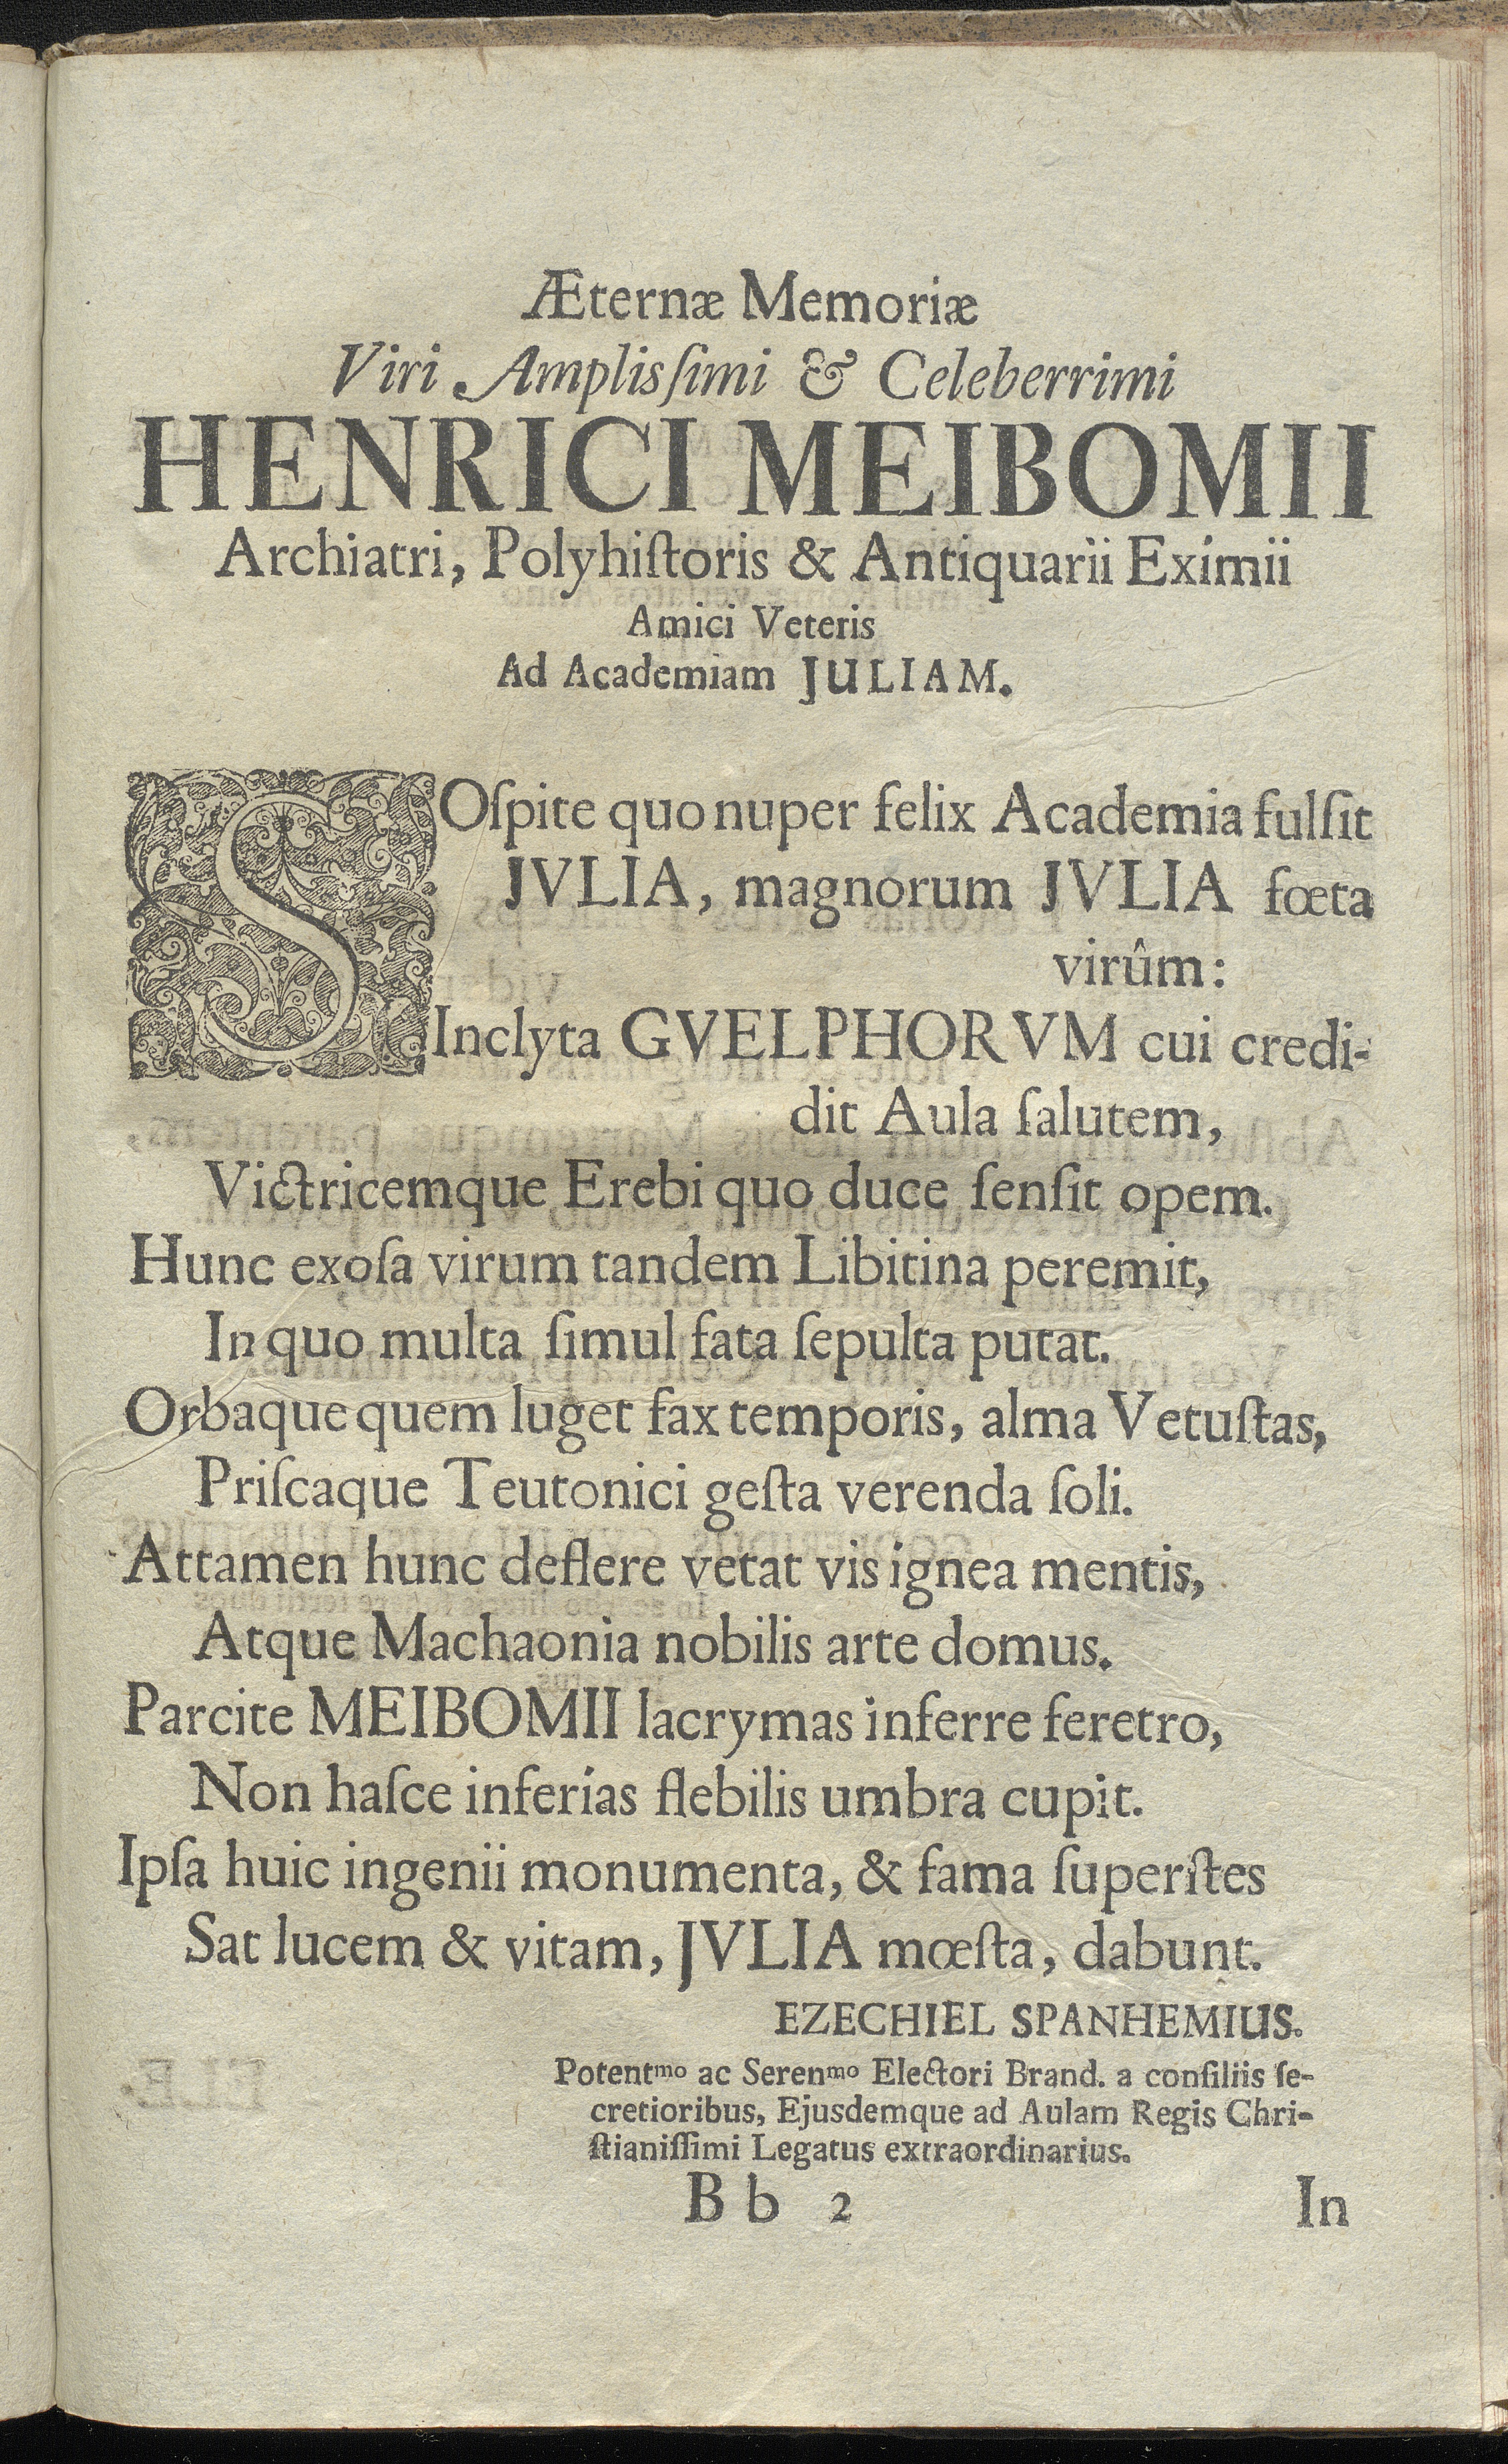 Æternæ Memoriæ
Viri Amplisſimi & Celeberrimi
HENRICI MEIBOMII
Archiatri, Polyhiſtoris & Antiquarii Eximii
Amici Veteris
Ad Academiam JULIAM.
SOſpite quo nuper felix Academia fulſit
JVLIA, magnorum JVLIA fœta
virûm:
Inclyta GVELPHORVM cui credi-
dit Aula ſalutem,
Victricemque Erebi quo duce ſenſit opem.
Hunc exoſa virum tandem Libitina peremit,
In quo multa ſimul fata ſepulta putat.
Orbaque quem luget fax temporis, alma Vetuſtas,
Priſcaque Teutonici geſta verenda ſoli.
Attamen hunc deflere vetat vis ignea mentis,
Atque Machaonia nobilis arte domus.
Parcite MEIBOMII lacrymas inferre feretro,
Non haſce inferias flebilis umbra cupit.
Ipſa huic ingenii monumenta, & fama ſuperſtes
Sat lucem & vitam, JVLIA mœſta, dabunt.
EZECHIEL SPANHEMIUS.
Potentmo ac Serenmo Electori Brand. a conſiliis ſe-
cretioribus, Ejusdemque ad Aulam Regis Chri-
ſtianiſſimi Legatus extraordinarius.
Bb 2 In